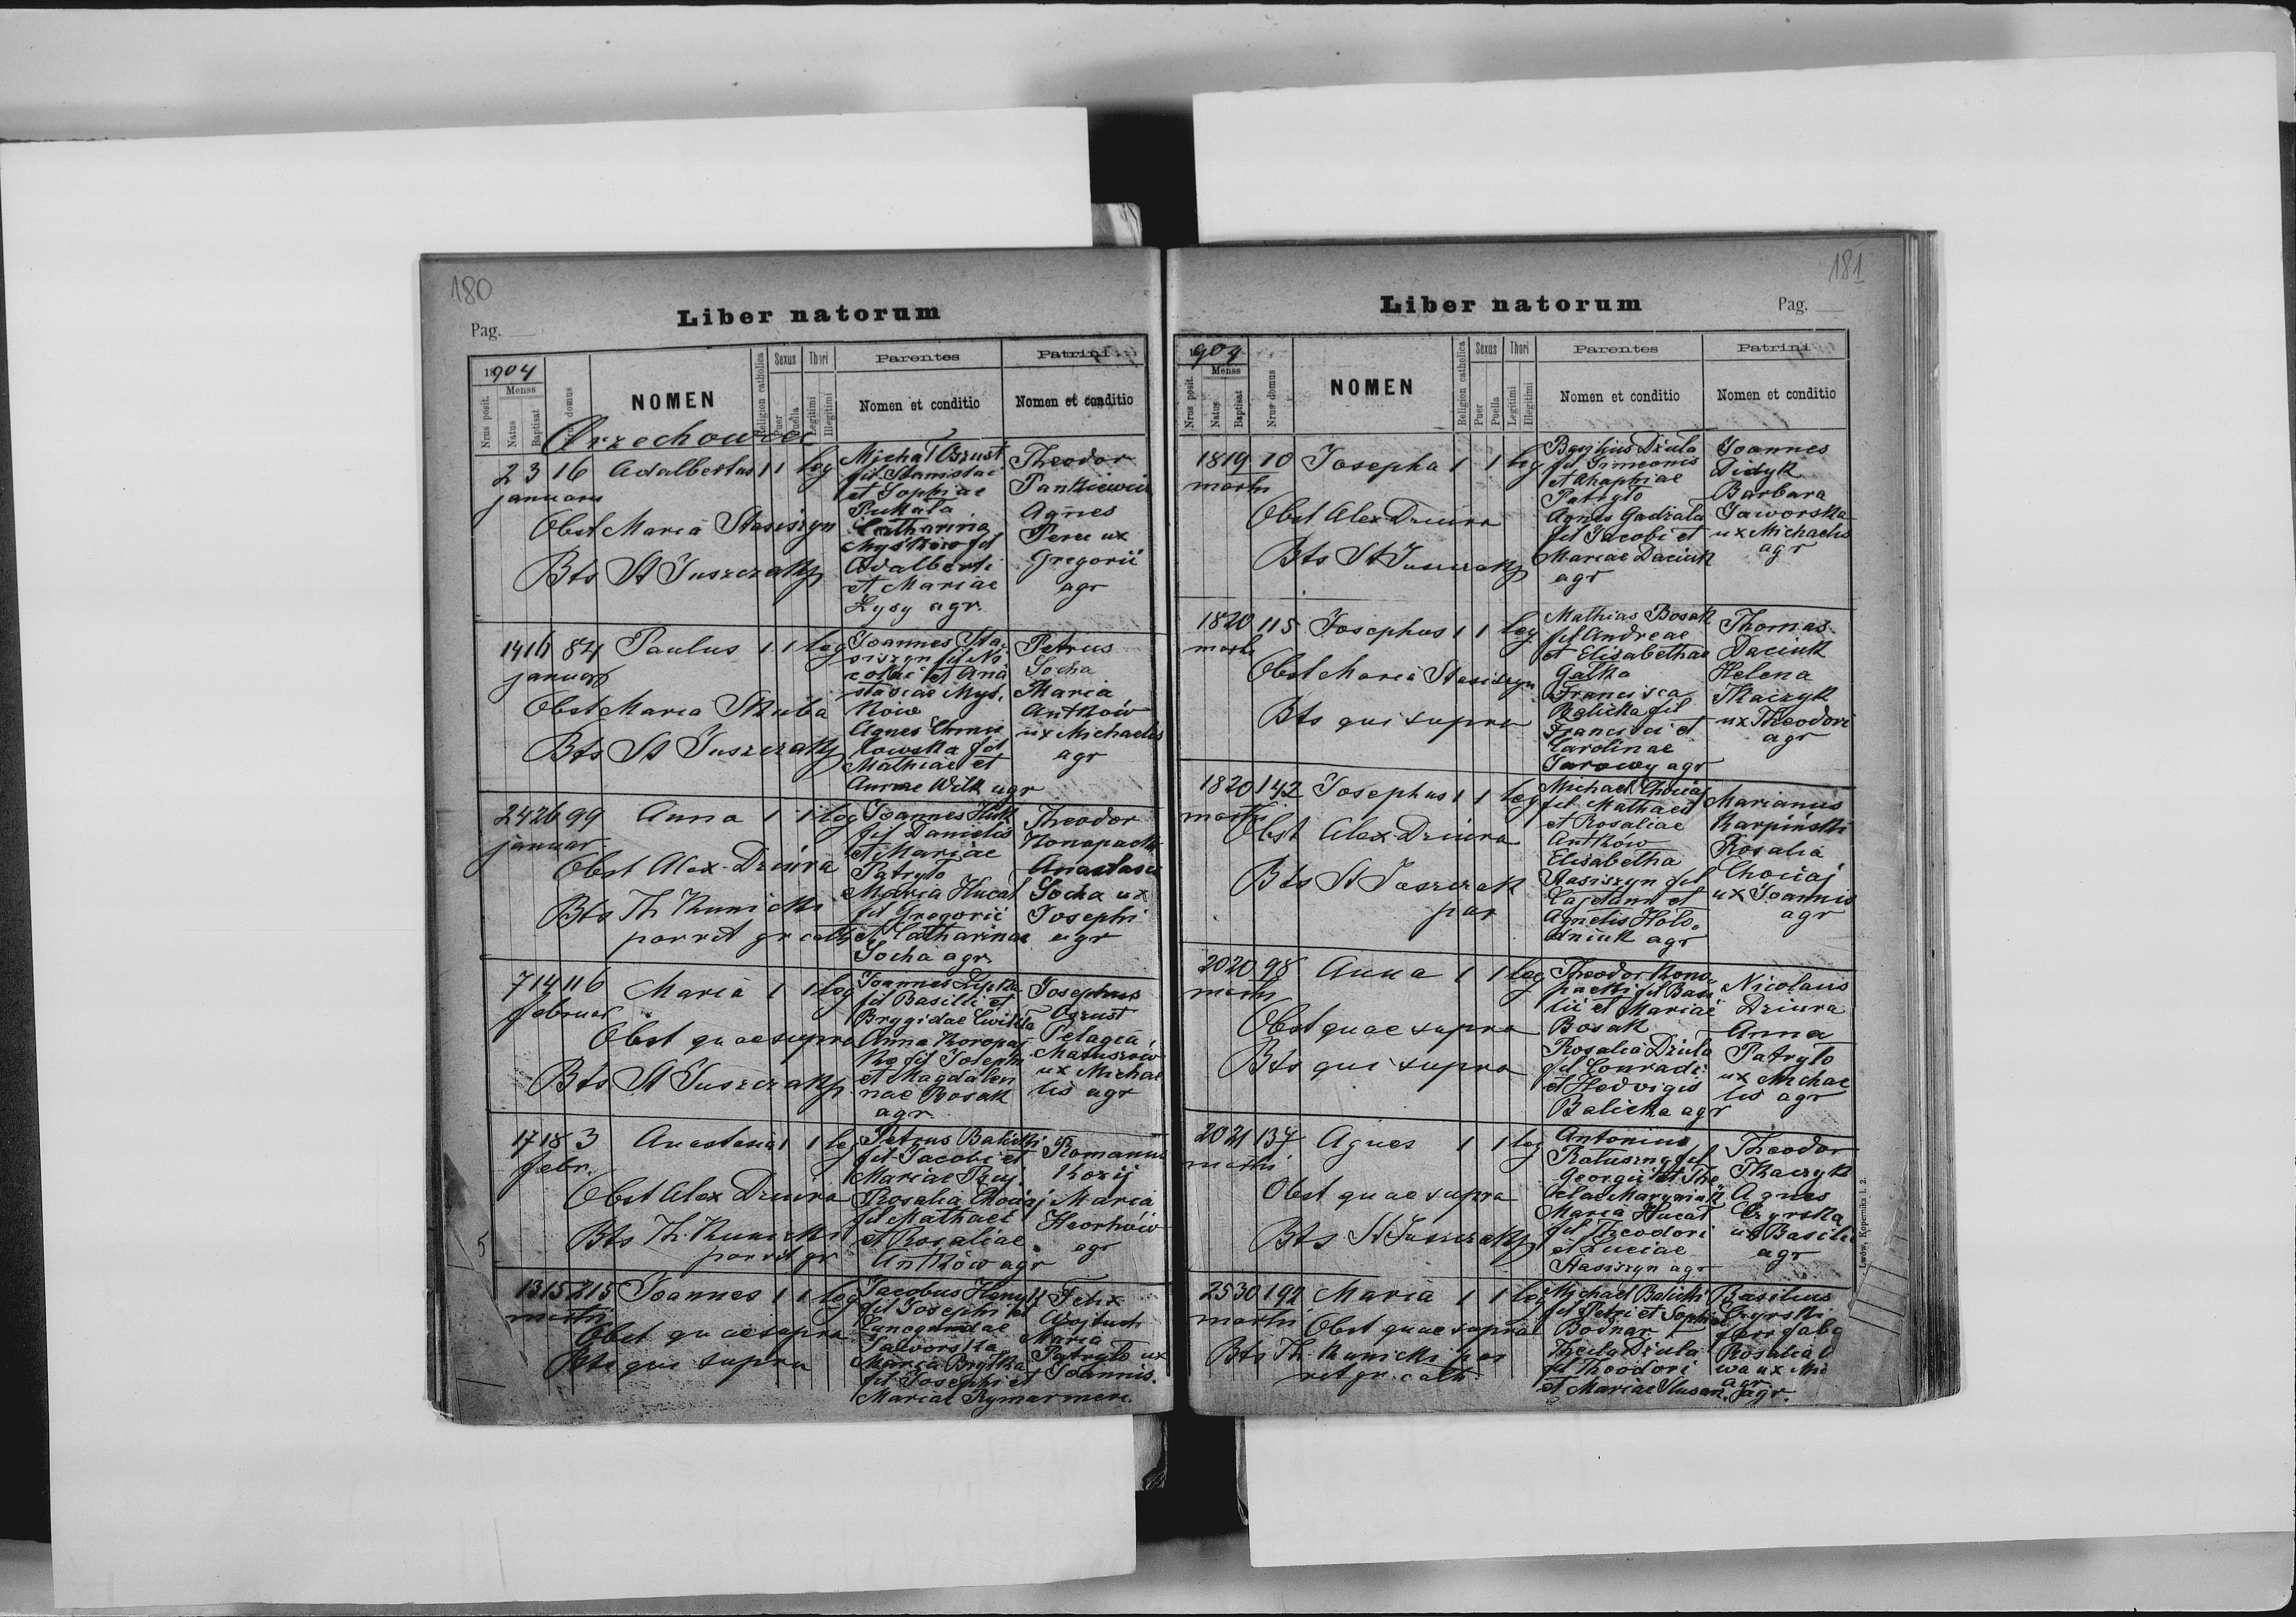 180
Liber natorum
Pag.
1904
Menss
Nrus posit.
Natus
Baptisat
domus
NOMEN
Religion catholica
Sexus
Puer
Puella
Thori
Legitimi
Illegitimi
Parentes
Nomen et conditio
Patrini
Nomen et conditio
2 3 16 Adalbertus 1 1 leg
januarii
Obst Maria Stasiszyn
Bts St Juszczak
Michał Ogzust
fil Stanislai
et Sophiae
Pukała
Catharina
Myśków fil
Adalberti
et Mariae
Łysy agr.
Theodor
Agnes
Perec ux
Gregorii
agr
14 16 84 Paulus 1 1 leg
januar
Obst Maria Skuba
Bts St Juszczak
Joannes Sta
siszyn fil Ni
colai et Ana
stasiae Mys.
ków
Agnes Chmie
lowska fil
Mathiae et
Annae Wilk agr
Petrus
Socha
Maria
Antków
ux Michaelis
agr
24 26 99 Anna 1 1 leg
januar
Obst Alex Dziura
Bts Th Kunicki
par rit gr cath
Joannes Huk
fil Danielis
et Mariae
Patryło
Maria Hucał
fil Gregorii
et Catharinae
Socha agr
Theodor
Konopacki
Anastasia
Socha ux
Josephi
agr
7 14 116 Maria 1 1 leg
februar
Obst quae supra
Bts St Juszczak
Joannes Lipka
fil Basilii et
Brygidae
Anna
fil Josephi
et Magdalen
nae Bosak
agr
Josephus
Ogzust
Pelagia
ux Michae
lis agr
17 18 3 Anastasia 1 1 leg
febr.
Obst Alex Dziura
Bts Th. Kunicki
par rit gr
Petrus Balicki
fil Jacobi et
Mariae
Rosalia Chociaj
fil Mathaei
et Rosaliae
Antków agr
Romanus
Kozij
Maria
Hawrków
agr
5
13 15 215 Joannes 1 1 leg
martii
Obst quae supra
Bts qui supra
Jacobus
fil Josephi et
Cunegundae
Jaworska
Maria Brytka
fil Josephi et
Mariae Rymar merc.
Felix
Wojtuch
Maria
Patryło ux
Joannis.
181
Liber natorum
Pag.
1904
Menss
Nrus posit.
Natus
Baptisat
Nrus domus
NOMEN
Religion catholica
Sexus
Puer
Puella
Thori
Legitimi
Illegitimi
Parentes
Nomen et conditio
Patrini
Nomen et conditio
18 19 10 Josepha 1 1 leg
martii
Obst Alex Dziura
Bts St Juszczak
Basilius Dziuła
fil Simeonis
et Ahaphiae
Patryło
Agnes Gudzała
fil Jacobi et
Mariae Daciuk
agr
Joannes
Didyk
Barbara
Jaworska
ux Michaelis
agr
18 20 115 Josephus 1 1 leg
martii
Obst Maria Stasiszyn
Bts qui supra
Mathias Bosak
fil Andreae
et Elisabethae
Gałka
Francisca
Balicka fil
Francisci et
Carolinae
Jarowy agr
Thomas
Daciuk
Helena
Tkaczyk
ux Theodori
agr
18 20 142 Josephus 1 1 leg
martii
Obst Alex Dziura
Bts St Juszczak
par
Michael Chociaj
fil Mathaei
et Rosaliae
Antków
Elisabetha
Stasiszyn fil
Cajetani et
Agnetis Holo
dniuk agr
Marianus
Karpiński
Rosalia
Chociaj
ux Joannis
agr
20 20 98 Anna 1 1 leg
martii
Obst quae supra
Bts qui supra
Theodor Kono
packi fil Basi
lii et Mariae
Bosak
Rosalia Dziuła
fil Conradi
et Hedvigis
Balicka agr
Nicolaus
Dziura
Anna
Patryło
ux Michae
lis agr
20 21 137 Agnes 1 1 leg
martii
Obst quae supra
Bts St Juszczak
Antonius
Ratuszny fil
Georgii et The
clae
Maria Hucał
fil Theodori
et Luciae
Stasiszyn agr
Theodor
Tkaczyk
Agnes
Czyrska
ux Basilii
agr
25 30 192 Maria 1 1 leg
martii
Obst quae supra
Bts Th. Kunicki par
rit gr. cath
Michael Balicki
fil Petri et Sophiae
Bodnar
Thecla Dziuła
fil Theodori
et Mariae agr.
Basilius
Czyrski
Rosalia
wa ux Mi
agr
Lwów, Kopernika l. 2.